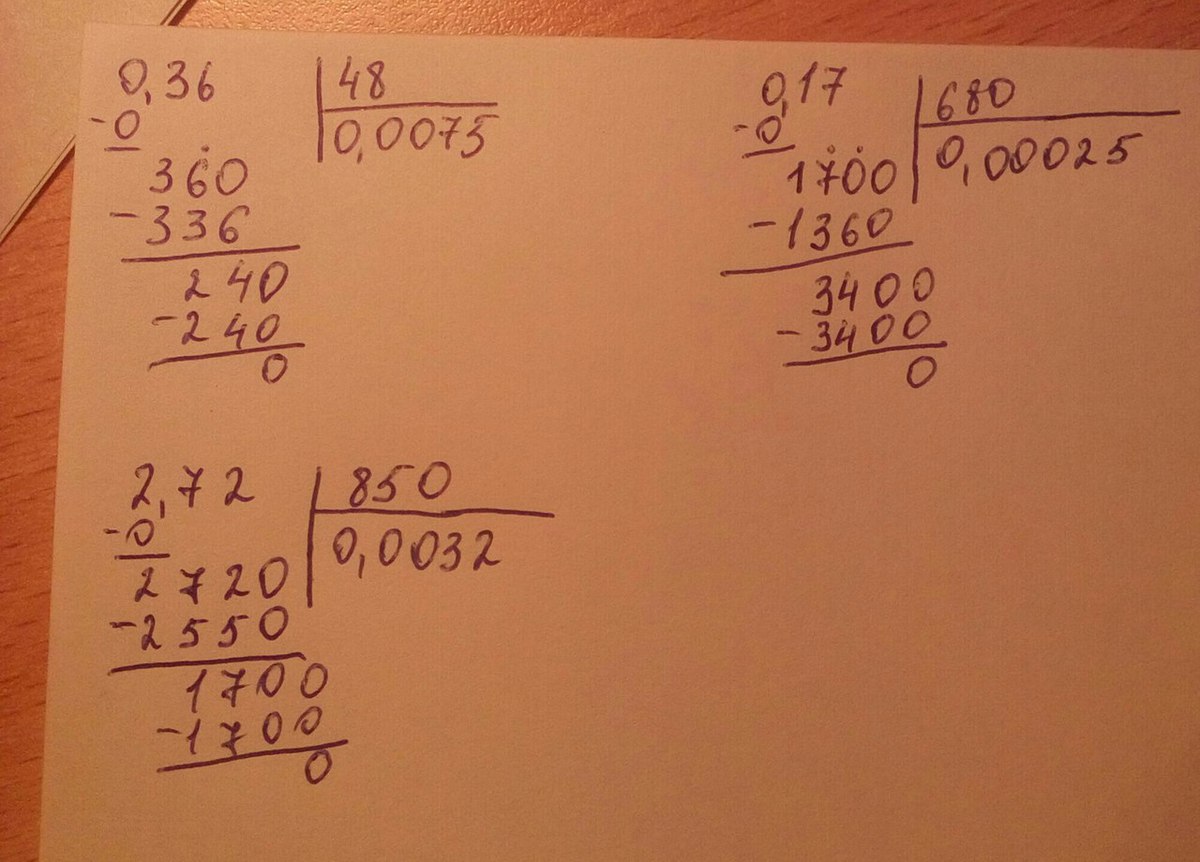 0,36 | 48
-0 | 0,0075
360
-336
240
-240
0
0,17 | 680
-0 | 0,00025
1700
-1360
3400
-3400
0
2,72 | 850
-0 | 0,0032
2720
-2550
1700
-1700
0